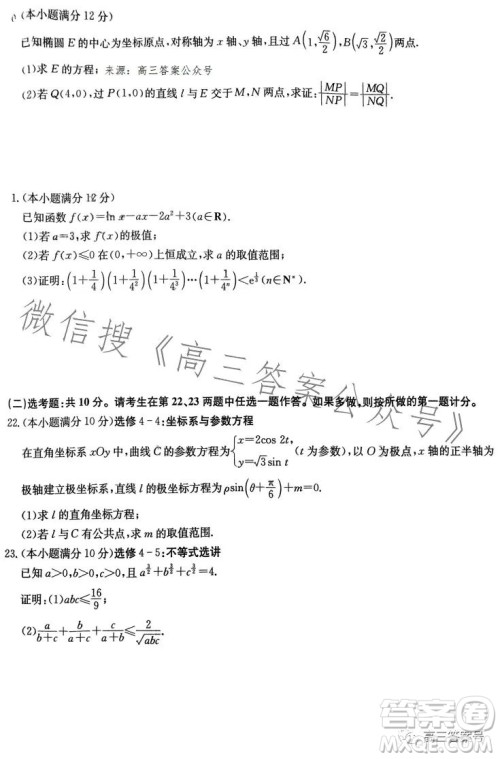 0 (本小题满分 12 分)
已知椭圆 E 的中心为坐标原点，对称轴为 x 轴、y 轴，且过 A(1, √6/2), B(√3, √2/2) 两点.
(1)求 E 的方程； 来源：高三答案公众号
(2)若 Q(4,0)，过 P(1,0) 的直线 l 与 E 交于 M, N 两点，求证：|MP|/|NP| = |MQ|/|NQ|.
1. (本小题满分 12 分)
已知函数 f(x)=ln x-ax-2a²+3(a∈R).
(1)若 a=3，求 f(x) 的极值；
(2)若 f(x)≤0 在 (0,+∞) 上恒成立，求 a 的取值范围；
(3)证明：(1+1/4)(1+1/4²)(1+1/4³)⋯(1+1/4ⁿ)<e^(1/3)(n∈N*).
微信搜《高三答案公众号》
(二)选考题：共 10 分。请考生在第 22、23 两题中任选一题作答。如果多做，则按所做的第一题计分。
22. (本小题满分 10 分)选修 4-4：坐标系与参数方程
在直角坐标系 xOy 中，曲线 C 的参数方程为{x=2cos 2t, y=√3 sin t (t 为参数)，以 O 为极点，x 轴的正半轴为
极轴建立极坐标系，直线 l 的极坐标方程为 ρsin(θ+π/6)+m=0.
(1)求 l 的直角坐标方程；
(2)若 l 与 C 有公共点，求 m 的取值范围.
23. (本小题满分 10 分)选修 4-5：不等式选讲
已知 a>0, b>0, c>0, a^(3/2)+b^(3/2)+c^(3/2)=4.
证明：(1)abc≤16/9；
(2)a/(b+c)+b/(a+c)+c/(a+b)≤2/√(abc).
答案圈
高三答案号
MXQE.COM